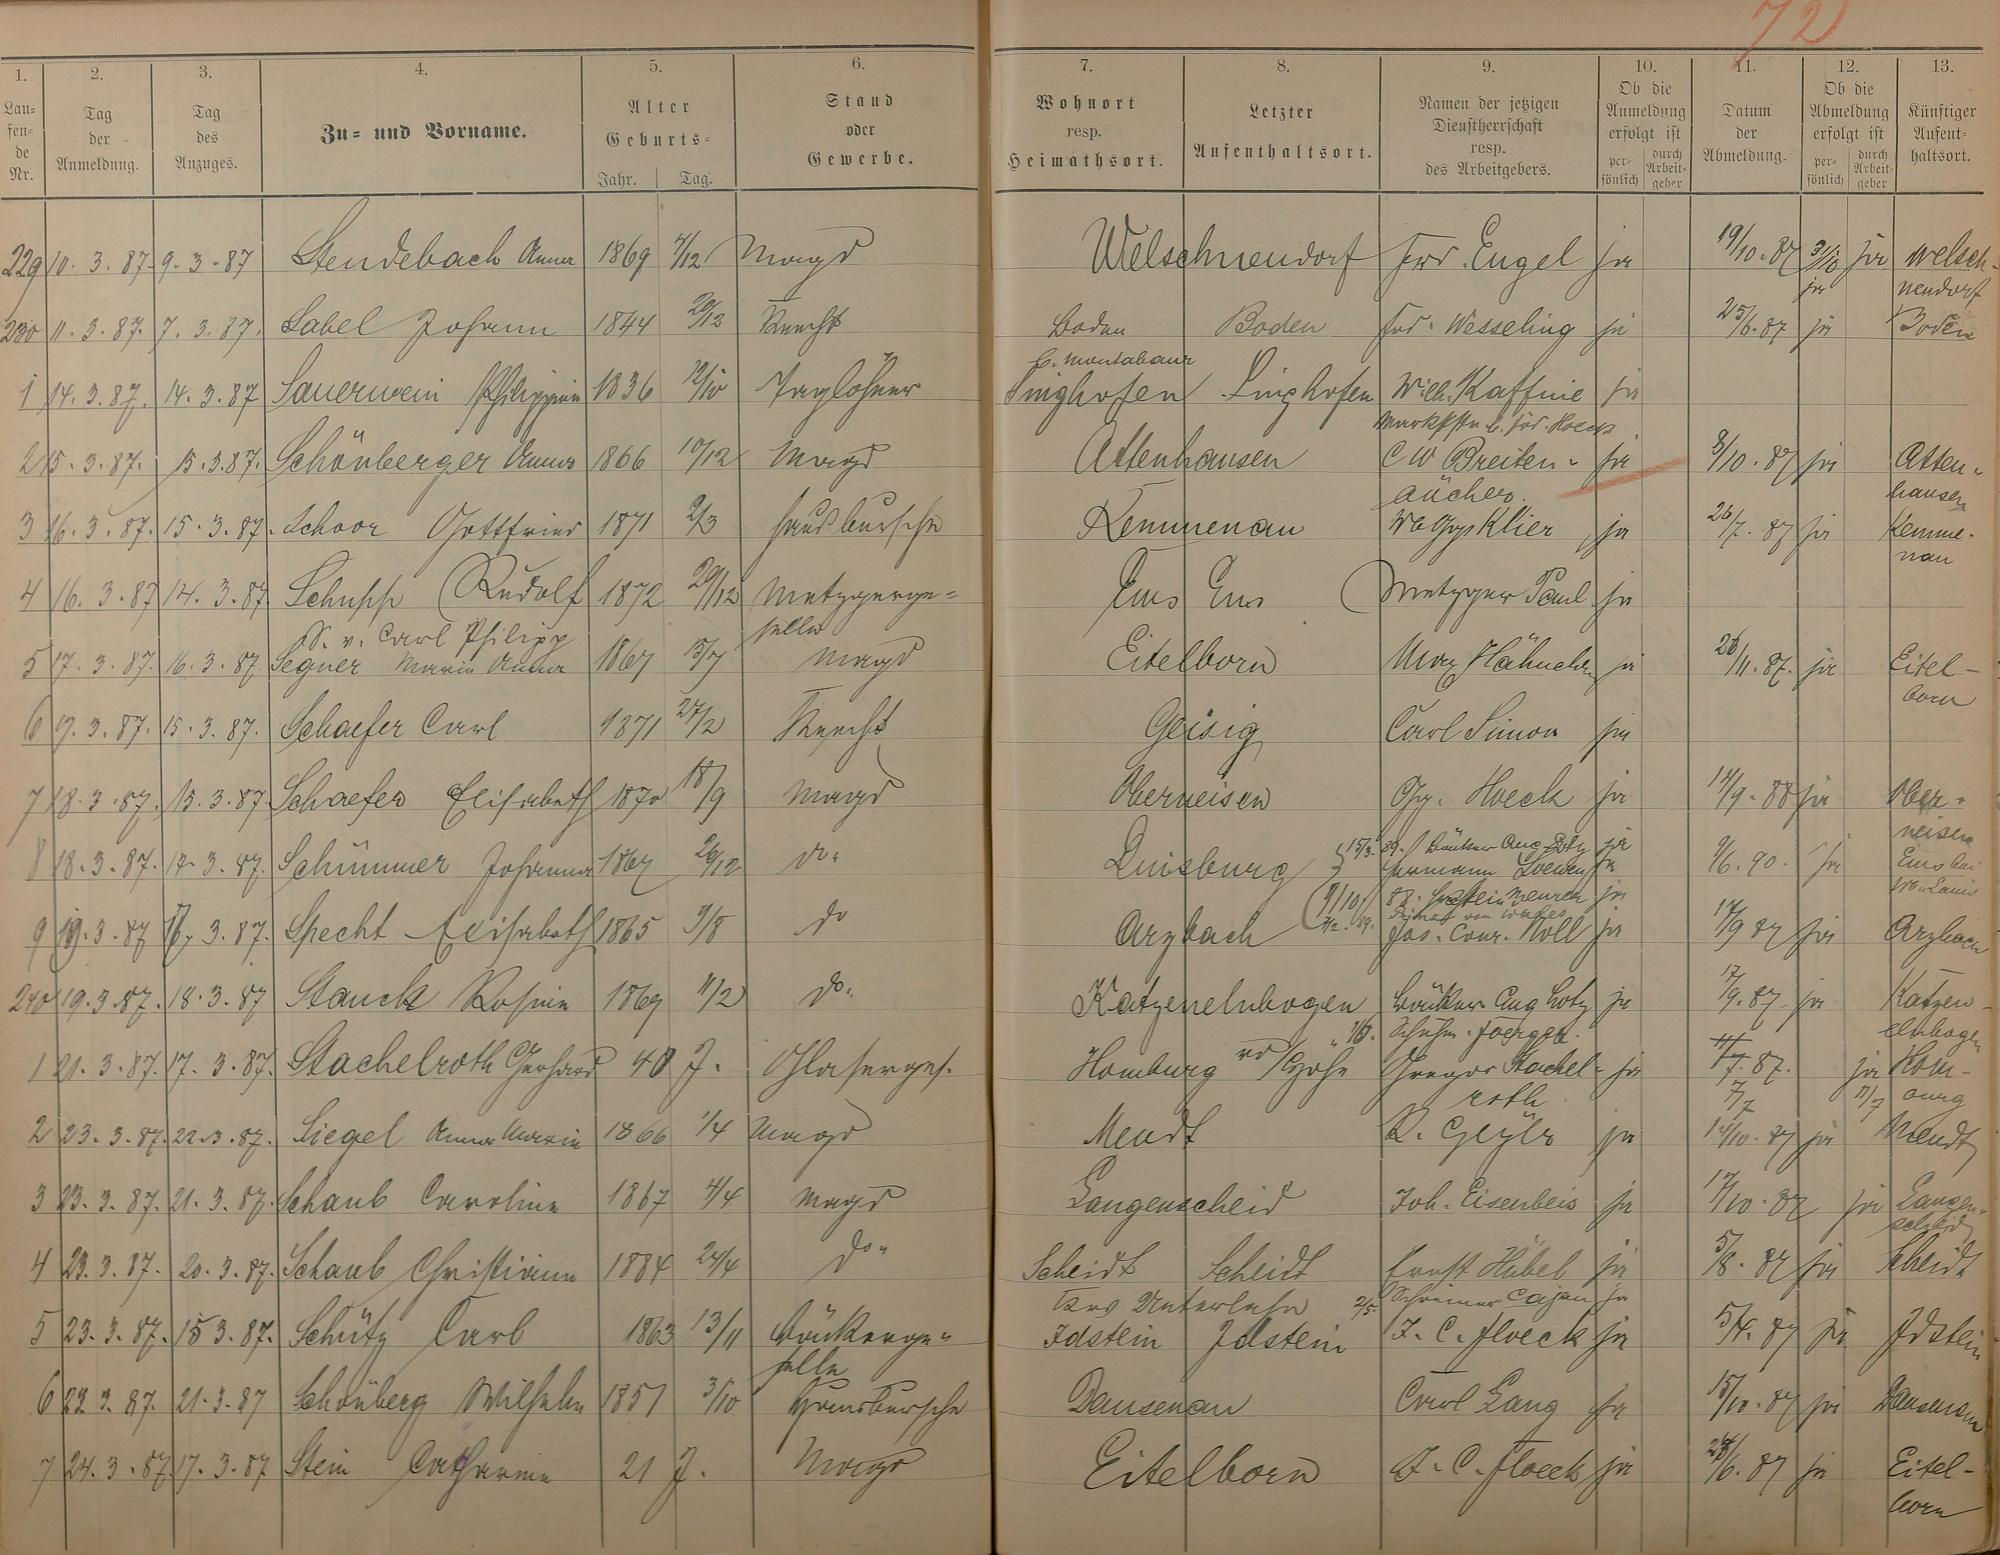 72
1. 2. 3. 4. 5. 6. 7. 8. 9. 10. 11. 12. 13.
Lau=
fen=
de
Nr.
Tag
der
Anmeldung.
Tag
des
Anzuges.
Zu= und Vorname.
Alter
Geburts=
Jahr. Tag.
Stand
oder
Gewerbe.
Wohnort
resp.
Heimathsort.
Letzter
Aufenthaltsort.
Namen der jetzigen
Dienstherrschaft
resp.
des Arbeitgebers.
Ob die
Anmeldung
erfolgt ist
per=
sönlich
durch
Arbeit=
geber
Datum
der
Abmeldung.
Ob die
Abmeldung
erfolgt ist
per=
sönlich
durch
Arbeit=
geber
Künftiger
Aufent=
haltsort.
229 10. 3. 87. 9. 3. 87 Stendebach Anna 1869 4/12 Magd Welschneudorf Ferd. Engel ja 19/10. 87 31/10 ja Welsch-
ja neudorf
230 11. 3. 87. 7. 3. 87. Sabel Johann 1844 20/12 Knecht Boden Boden Frd. Wesseling ja 25/6. 87 ja Boden
b. Montabaur
1 14. 3. 87. 14. 3. 87 Sauerwein Philippine 1836 12/10 Taglöhner Singhofen Singhofen Wilh. Kaffine ja
2 15. 3. 87. 15. 3. 87. Schönberger Anna 1866 10/12 Magd Attenhausen C W Breiten- ja 8/10. 87 ja Atten-
bücher. hausen
3 16. 3. 87. 15. 3. 87. Schoor Gottfried 1871 2/3 Hausbursche Kemmenau Klier ja 26/7. 87 ja Kemme-
nau
4 16. 3. 87 14. 3. 87. Schupp Rudolf 1872 29/12 Metzgerge=
S. v. Carl Philipp selle
Ems Ems Metzger Paul ja
5 17. 3. 87. 16. 3. 87. Segner Maria Anna 1867 15/7 Magd Eitelborn Max Hähnchen ja 26/11. 87. ja Eitel-
born
6 17. 3. 87. 15. 3. 87. Schaefer Carl 1871 27/2 Knecht Geisig Carl Simon ja
7 18. 3. 87. 15. 3. 87. Schaefer Elisabeth 1870 18/9 Magd Oberneisen Gg. Hoeck ja 14/9. 88 ja Ober-
neisen
8 18. 3. 87. 17. 3. 87. Schümmer Johanna 1867 26/12 do. Duisburg Hermann Loewen ja 9/6. 90. ja Ems bei
9 19. 3. 87 17. 3. 87. Specht Elisabeth 1865 9/8 do Arzbach Jos. Conr. Noll ja 17/9 87 ja Arzbach
240 19. 3. 87. 18. 3. 87 Stauch Rosine 1869 11/2 do. Katzenelnbogen Bäcker Aug Lotz ja 17/9. 87. ja Katzen-
elnbogen
1 21. 3. 87. 17. 3. 87. Stachelroth Gerhard 40 J. Glaserges. Homburg vd Höhe Gregor Stachel- ja 7. 87. ja Hom-
roth 7/7 11/7 burg
2 23. 3. 87. 22. 3. 87. Siegel Anna Maria 1866 1/4 Magd Meudt R. Geyer ja 14/10. 87 ja Meudt
3 23. 3. 87. 21. 3. 87. Schaub Caroline 1867 4/4 Magd Langenscheid Joh. Eisenbeis ja 17/10. 87 ja Langen-
scheid
4 23. 3. 87. 20. 3. 87. Schaub Christiane 1884 24/4 do. Scheidt Scheidt Ernst Hübel ja 5/8. 87 ja Scheidt
2/5. Schreiner Cajan ja
5 23. 3. 87. 15 3. 87. Schütz Carl 1863 13/11 Bäckerge-
selle
Idstein Idstein J. C. Floeck ja 5/4. 87 ja Idstein
6 22 3. 87. 21. 3. 87 Schönberg Wilhelm 1857 3/10 Hausbursche Dausenau Carl Lang ja 15/10. 87 ja Dausenau
7 24. 3. 87 17. 3. 87 Stein Catharina 21 J. Magd Eitelborn J. C. Floeck ja 24/6. 87 ja Eitel-
born